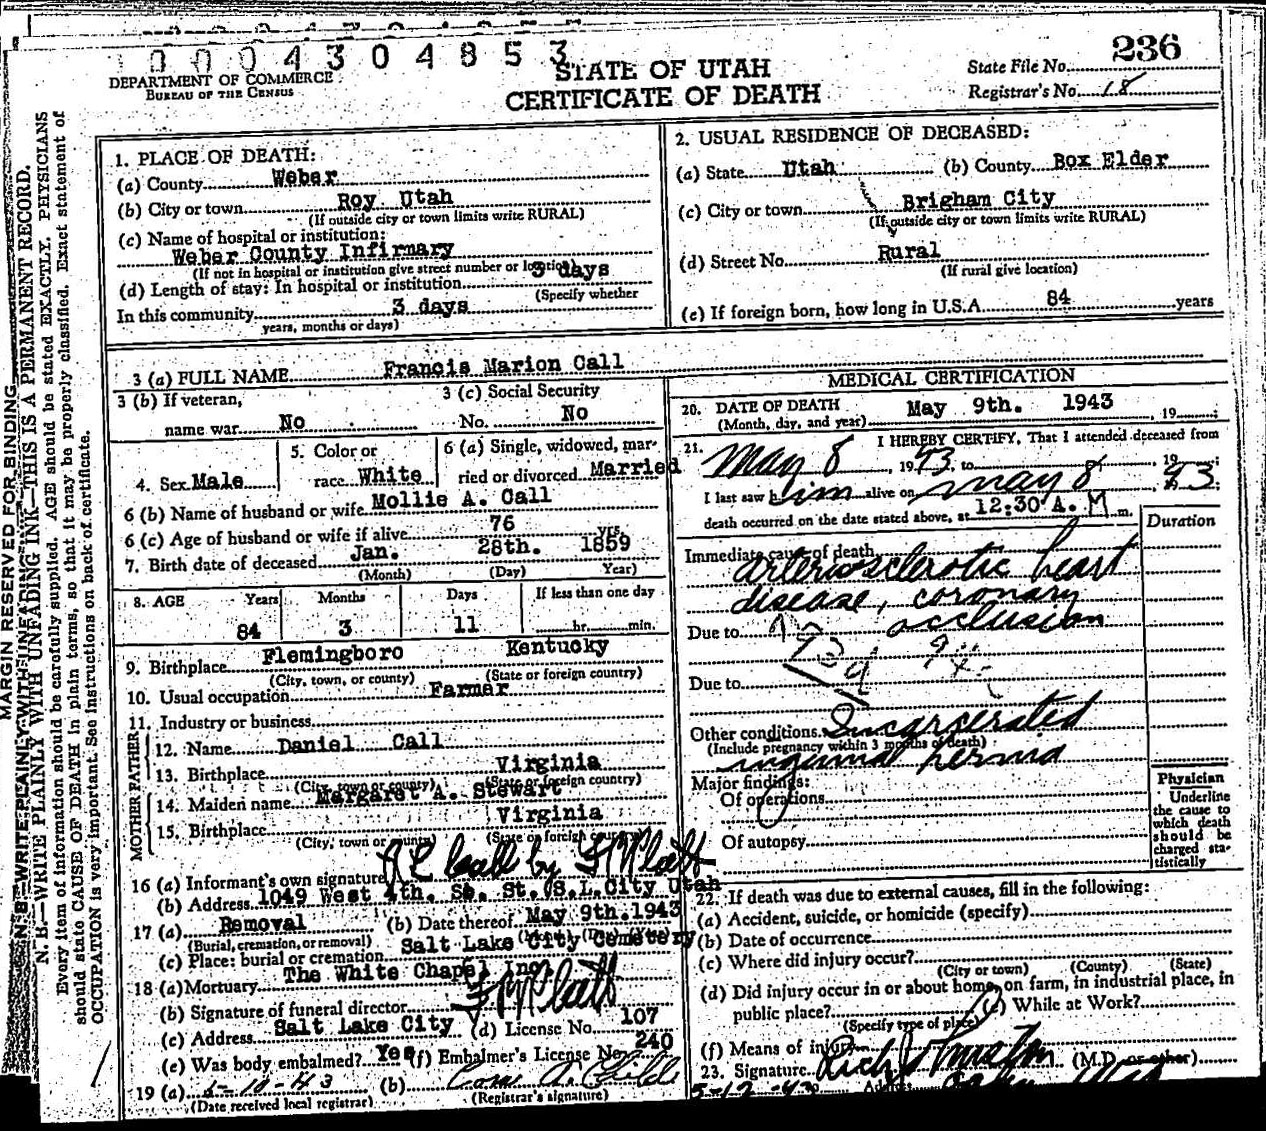 0004304853
236
DEPARTMENT OF COMMERCE
BUREAU OF THE CENSUS
STATE OF UTAH
CERTIFICATE OF DEATH
State File No.
Registrar's No. 18
MARGIN RESERVED FOR BINDING
N. B.—WRITE PLAINLY WITH UNFADING INK—THIS IS A PERMANENT RECORD.
Every item of information should be carefully supplied. AGE should be stated EXACTLY. PHYSICIANS
should state CAUSE OF DEATH in plain terms, so that it may be properly classified. Exact statement of
OCCUPATION is very important. See instructions on back of certificate.
1. PLACE OF DEATH:
(a) County Weber
(b) City or town Roy Utah
(If outside city or town limits write RURAL)
(c) Name of hospital or institution:
Weber County Infirmary
(If not in hospital or institution give street number or location)
(d) Length of stay: In hospital or institution 3 days
(Specify whether
In this community 3 days
years, months or days)
2. USUAL RESIDENCE OF DECEASED:
(a) State Utah (b) County Box Elder
(c) City or town Brigham City
(If outside city or town limits write RURAL)
(d) Street No. Rural
(If rural give location)
(e) If foreign born, how long in U.S.A. 84 years
3 (a) FULL NAME Francis Marion Call
3 (b) If veteran, name war No
3 (c) Social Security No. No
4. Sex Male
5. Color or race White
6 (a) Single, widowed, married or divorced Married
6 (b) Name of husband or wife Mollie A. Call
6 (c) Age of husband or wife if alive 76 yrs.
7. Birth date of deceased Jan. 28th. 1859
(Month) (Day) Year)
8. AGE Years Months Days If less than one day
84 3 11 hr. min.
9. Birthplace Flemingboro Kentucky
(City, town, or county) (State or foreign country)
10. Usual occupation Farmer
11. Industry or business
FATHER
12. Name Daniel Call
13. Birthplace Virginia
(City, town or county) (State or foreign country)
MOTHER
14. Maiden name Margaret A. Stewart
15. Birthplace Virginia
(City, town or county) (State or foreign country)
16 (a) Informant's own signature
(b) Address 1049 West 4th. So. St. S.L.City Utah
17 (a) Removal (b) Date thereof May 9th.1943
(Burial, cremation, or removal) (Month) (Day) (Year)
(c) Place: burial or cremation Salt Lake City Cemetery
18 (a) Mortuary The White Chapel Inc.
(b) Signature of funeral director
(c) Address Salt Lake City (d) License No. 107
(e) Was body embalmed? Yes (f) Embalmer's License No. 240
19 (a) 5-10-43 (b)
(Date received local registrar) (Registrar's signature)
MEDICAL CERTIFICATION
20. DATE OF DEATH May 9th. 1943, 19
(Month, day, and year)
21. I HEREBY CERTIFY, That I attended deceased from
May 8, 1943, to , 19
I last saw him alive on May 8, 43
death occurred on the date stated above, at 12:30 A. M m.
Duration
Immediate cause of death
arteriosclerotic heart
disease, coronary
Due to occlusion
Due to
Other conditions Incarcerated
(Include pregnancy within 3 months of death)
inguinal hernia
Major findings:
Of operations
Of autopsy
Physician
Underline
the cause to
which death
should be
charged sta-
tistically
22. If death was due to external causes, fill in the following:
(a) Accident, suicide, or homicide (specify)
(b) Date of occurrence
(c) Where did injury occur?
(City or town) (County) (State)
(d) Did injury occur in or about home, on farm, in industrial place, in
public place? (e) While at Work?
(Specify type of place)
(f) Means of injury
23. Signature (M.D. or other)
5-12-43 Address